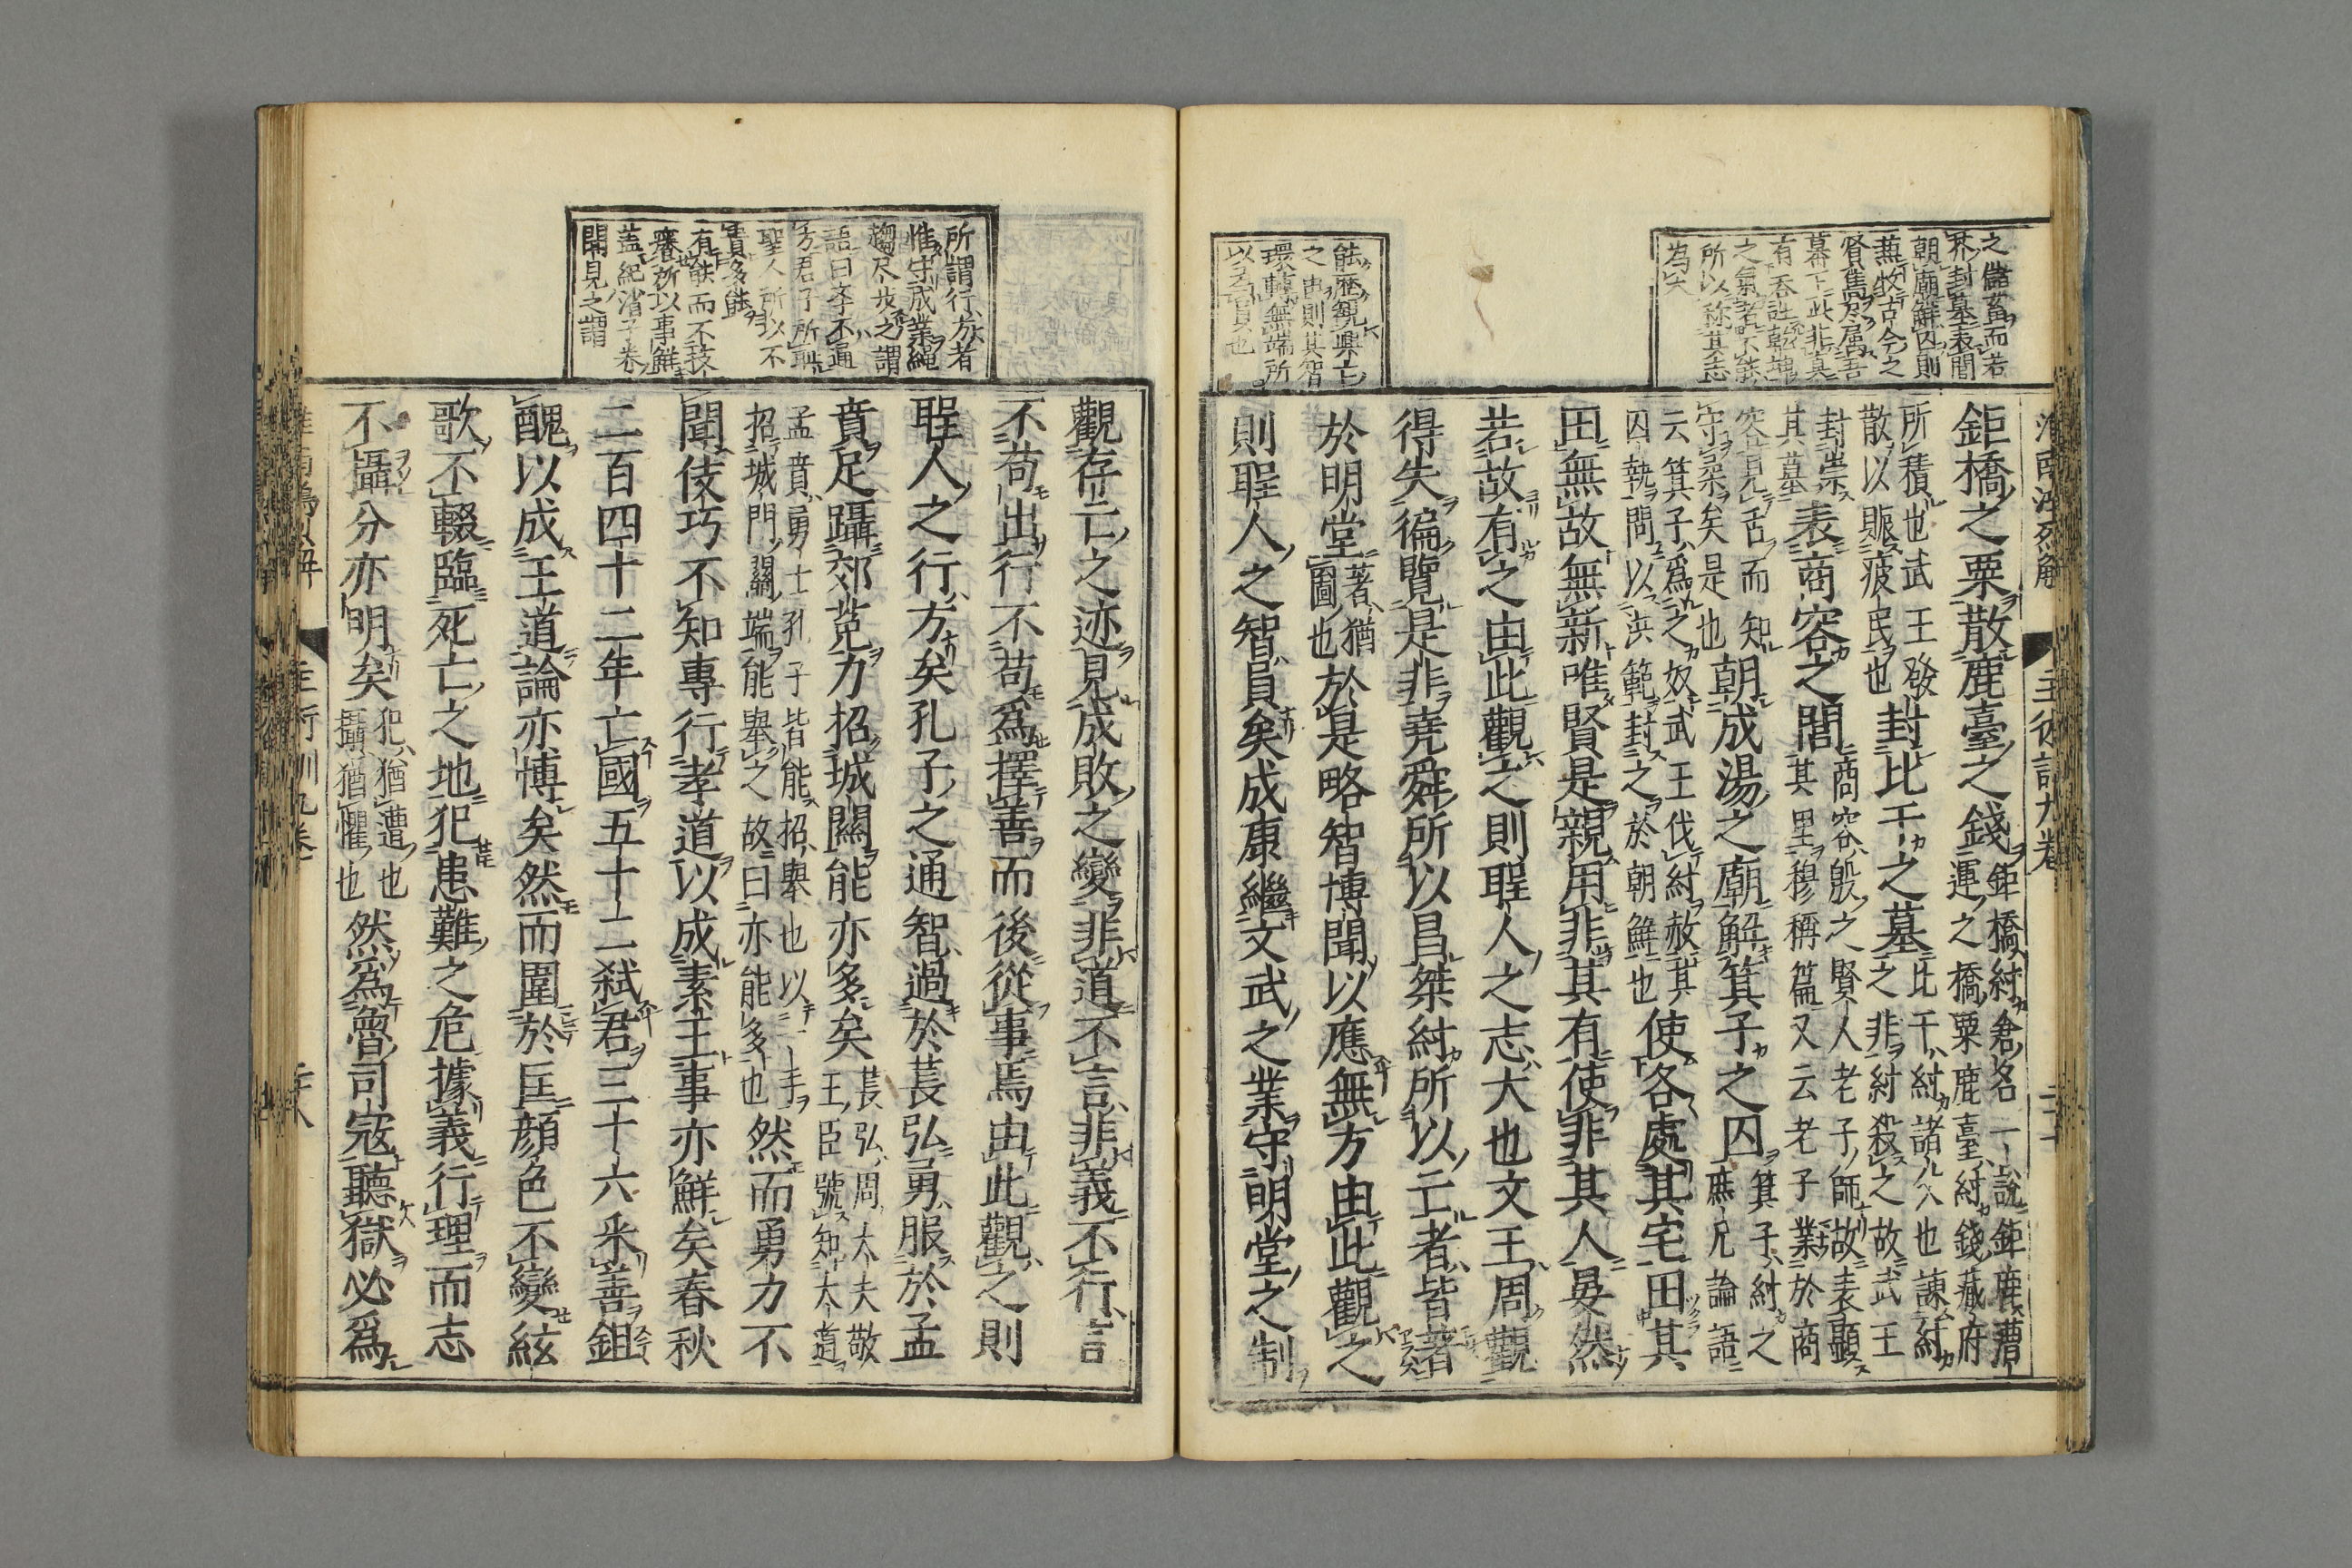 之儲畜而若
朝廟解囚則
兼牧古今之
為矣
能歴観興亡
之由則其智
環轉無端所
以為員也
淮南鴻烈解
主術訓九卷
鉅橋之粟散鹿臺之錢鉅橋紂倉名一說鉅鹿漕
運之橋粟鹿臺紂錢藏府
所積也武王發
散以賑疲民也封比干之墓比干紂諸父也諫紂
之非紂殺之故武王
封崇
其墓表商容之閭商容殷之賢人老子師故表顯
其里穆稱篇又云老子業於商
容見舌而知
守柔矣是也朝成湯之廟解箕子之囚箕子紂之
庶兄論語
云箕子爲之奴武王伐紂赦其
囚執問以洪範封之於朝鮮也使各處其宅田其
田無故無新唯賢是親用非其有使非其人晏然
若故有之由此觀之則聖人之志大也文王周觀
得失徧覽是非堯舜所以昌桀紂所以亡者皆著
於明堂著猶
圖也於是略智博聞以應無方由此觀之
則聖人之智員矣成康繼文武之業守明堂之制
所謂行方者
惟守成業繩
趨尺歩之謂
語曰率不遍
方君子所耻
聖人所以不
貴多能
有能而不技
癢所以事鮮
蓋紀渻子養
聞見之謂
觀存亡之迹見成敗之變非道不言非義不行言
不苟出行不苟爲擇善而後從事焉由此觀之則
聖人之行方矣孔子之通智過於萇弘勇服於孟
賁足躡郊菟力招城關能亦多矣萇弘周大夫敬
王臣號知大道
孟賁勇士孔子皆能招舉也以一手
招城門關端能舉之故曰亦能多也然而勇力不
聞伎巧不知專行孝道以成素王事亦鮮矣春秋
二百四十二年亡國五十二弑君三十六采善鉏
醜以成王道論亦博矣然而圍於匡顏色不變絃
歌不輟臨死亡之地犯患難之危據義行理而志
不攝分亦明矣犯猶遭也
攝猶懼也然爲魯司寇聽獄必爲